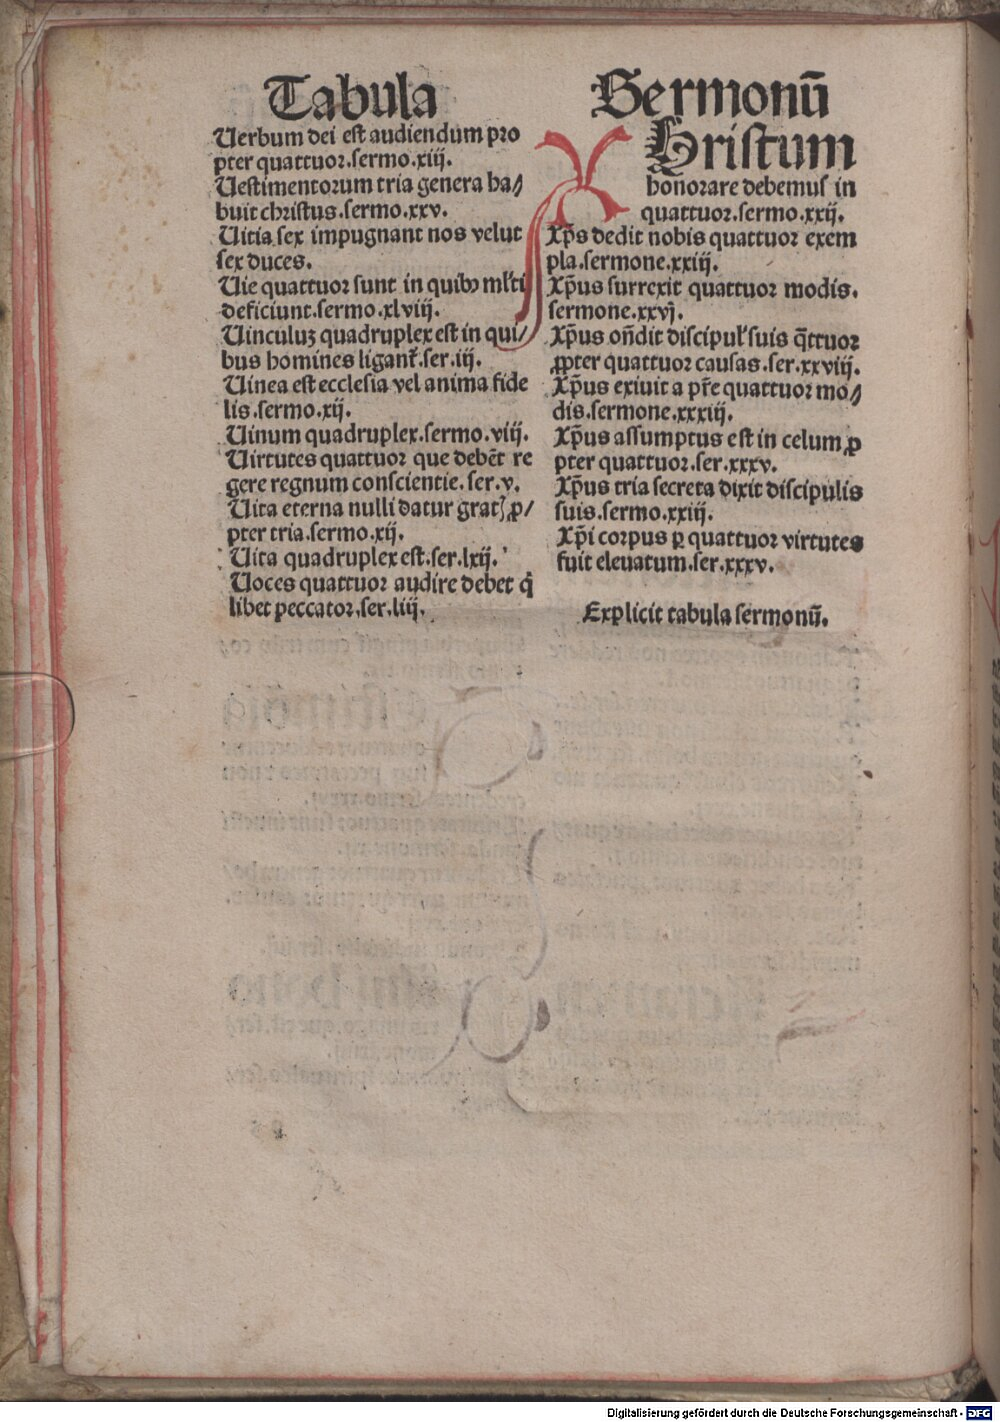 Tabula
Uerbum dei est audiendum pro
pter quattuor.sermo.xiij.
Uestimentorum tria genera ha⸗
buit christus.sermo.xxv.
Uitia sex impugnant nos velut
sex duces.
Uie quattuor sunt in quibꝰ ml'ti
deficiunt.sermo.xlviij.
Uinculuꝫ quadruplex est in qui⸗
bus homines ligant᷑.ser.iij.
Uinea est ecclesia vel anima fide
lis.sermo.xij.
Uinum quadruplex.sermo.viij.
Uirtutes quattuor que debēt re
gere regnum conscientie.ser.v.
Uita eterna nulli datur gratꝭ ꝓ⸗
pter tria.sermo.xij.
Uita quadruplex est.ser.lxij.
Uoces quattuor audire debet q̄
libet peccator.ser.liij.
Sermonū
Xhristum
honorare debemus in
quattuor.sermo.xxij.
Xp̄s dedit nobis quattuor exem
pla.sermone.xxiij.
Xp̄us surrexit quattuor modis.
sermone.xxvj.
Xp̄us on̄dit discipul' suis q̄ttuor
ꝓpter quattuor causas.ser.xxviij.
Xp̄us exiuit a pr̄e quattuor mo⸗
dis.sermone.xxxiij.
Xp̄us assumptus est in celum ꝓ
pter quattuor.ser.xxxv.
Xp̄us tria secreta dixit discipulis
suis.sermo.xxiij.
Xp̄i corpus ꝑ quattuor virtutes
fuit eleuatum.ser.xxxv.
Explicit tabula sermonū.
Digitalisierung gefördert durch die Deutsche Forschungsgemeinschaft - DFG